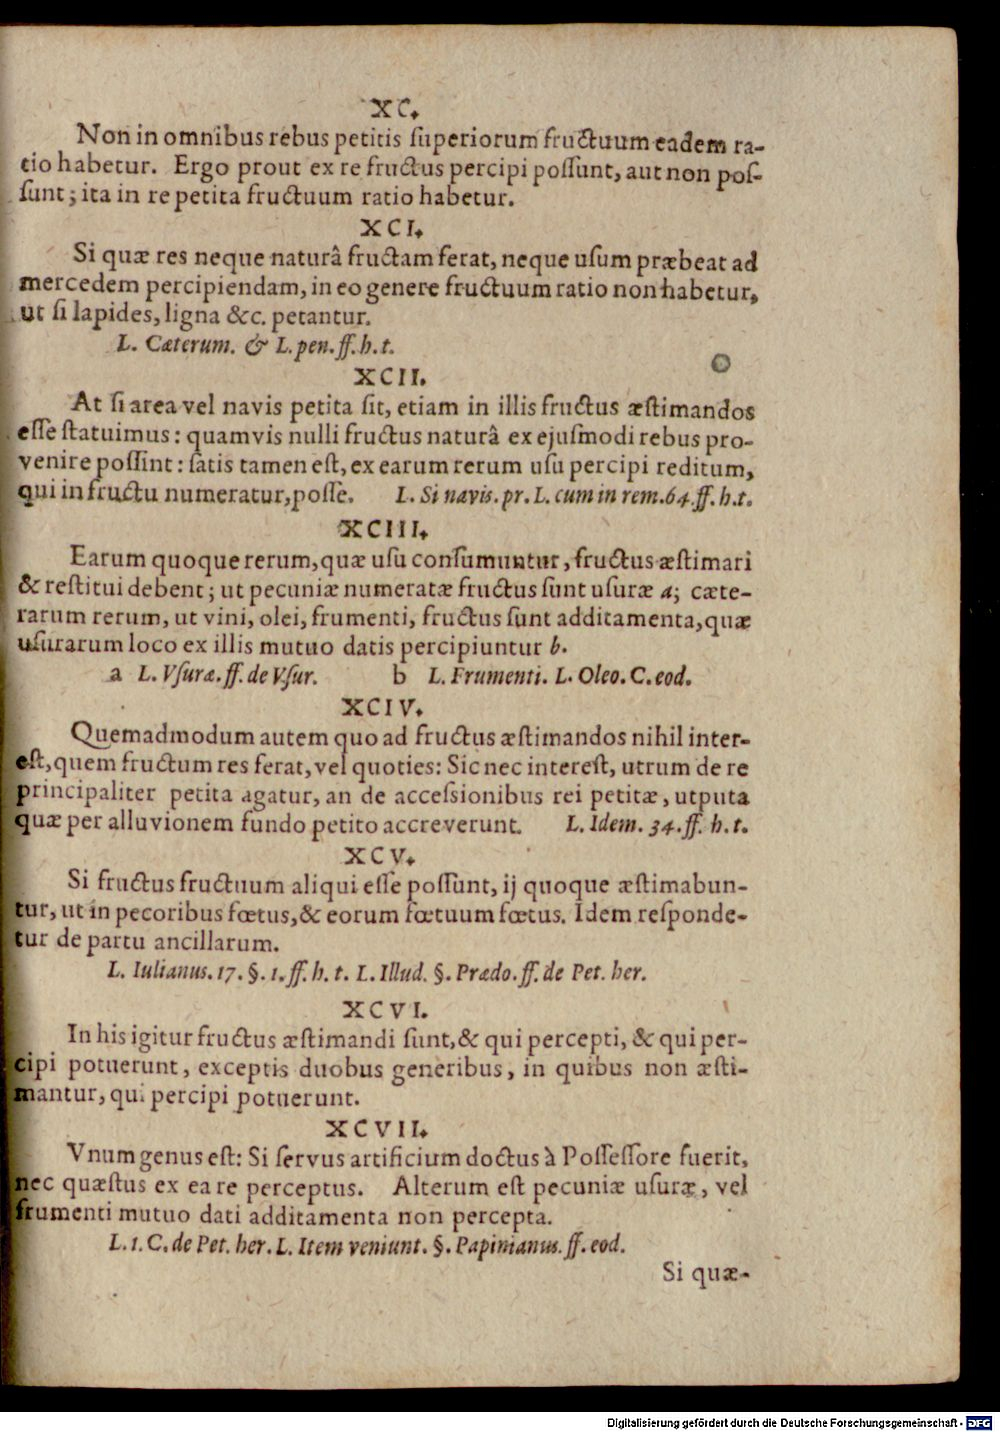 XC.
Non in omnibus rebus petitis superiorum fructuum eadem ra-
tio habetur. Ergo prout ex re fructus percipi possunt, aut non pos-
sunt; ita in re petita fructuum ratio habetur.
XCI.
Si quæ res neque naturâ fructam ferat, neque usum præbeat ad
mercedem percipiendam, in eo genere fructuum ratio non habetur,
ut si lapides, ligna &c. petantur.
L. Cæterum. & L. pen. ff. h. t.
XCII.
At si area vel navis petita sit, etiam in illis fructus æstimandos
esse statuimus: quamvis nulli fructus naturâ ex ejusmodi rebus pro-
venire possint: satis tamen est, ex earum rerum usu percipi reditum,
qui in fructu numeratur, posse. L. Si navis. pr. L. cum in rem. 64. ff. h. t.
XCIII.
Earum quoque rerum, quæ usu consumuntur, fructus æstimari
& restitui debent; ut pecuniæ numeratæ fructus sunt usuræ a; cæte-
rarum rerum, ut vini, olei, frumenti, fructus sunt additamenta, quæ
usurarum loco ex illis mutuo datis percipiuntur b.
a L. Vsuræ. ff. de Vsur. b L. Frumenti. L. Oleo. C. eod.
XCIV.
Quemadmodum autem quo ad fructus æstimandos nihil inter-
est, quem fructum res ferat, vel quoties: Sic nec interest, utrum de re
principaliter petita agatur, an de accessionibus rei petitæ, utputa
quæ per alluvionem fundo petito accreverunt. L. Idem. 34. ff. h. t.
XCV.
Si fructus fructuum aliqui esse possunt, ij quoque æstimabun-
tur, ut in pecoribus fœtus, & eorum fœtuum fœtus. Idem responde-
tur de partu ancillarum.
L. Iulianus. 17. §. 1. ff. h. t. L. Illud. §. Prædo. ff. de Pet. her.
XCVI.
In his igitur fructus æstimandi sunt, & qui percepti, & qui per-
cipi potuerunt, exceptis duobus generibus, in quibus non æsti-
mantur, qui percipi potuerunt.
XCVII.
Vnum genus est: Si servus artificium doctus à Possessore fuerit,
nec quæstus ex ea re perceptus. Alterum est pecuniæ usuræ, vel
frumenti mutuo dati additamenta non percepta.
L. 1. C. de Pet. her. L. Item veniunt. §. Papinianus. ff. eod.
Si quæ-
Digitalisierung gefördert durch die Deutsche Forschungsgemeinschaft - DFG